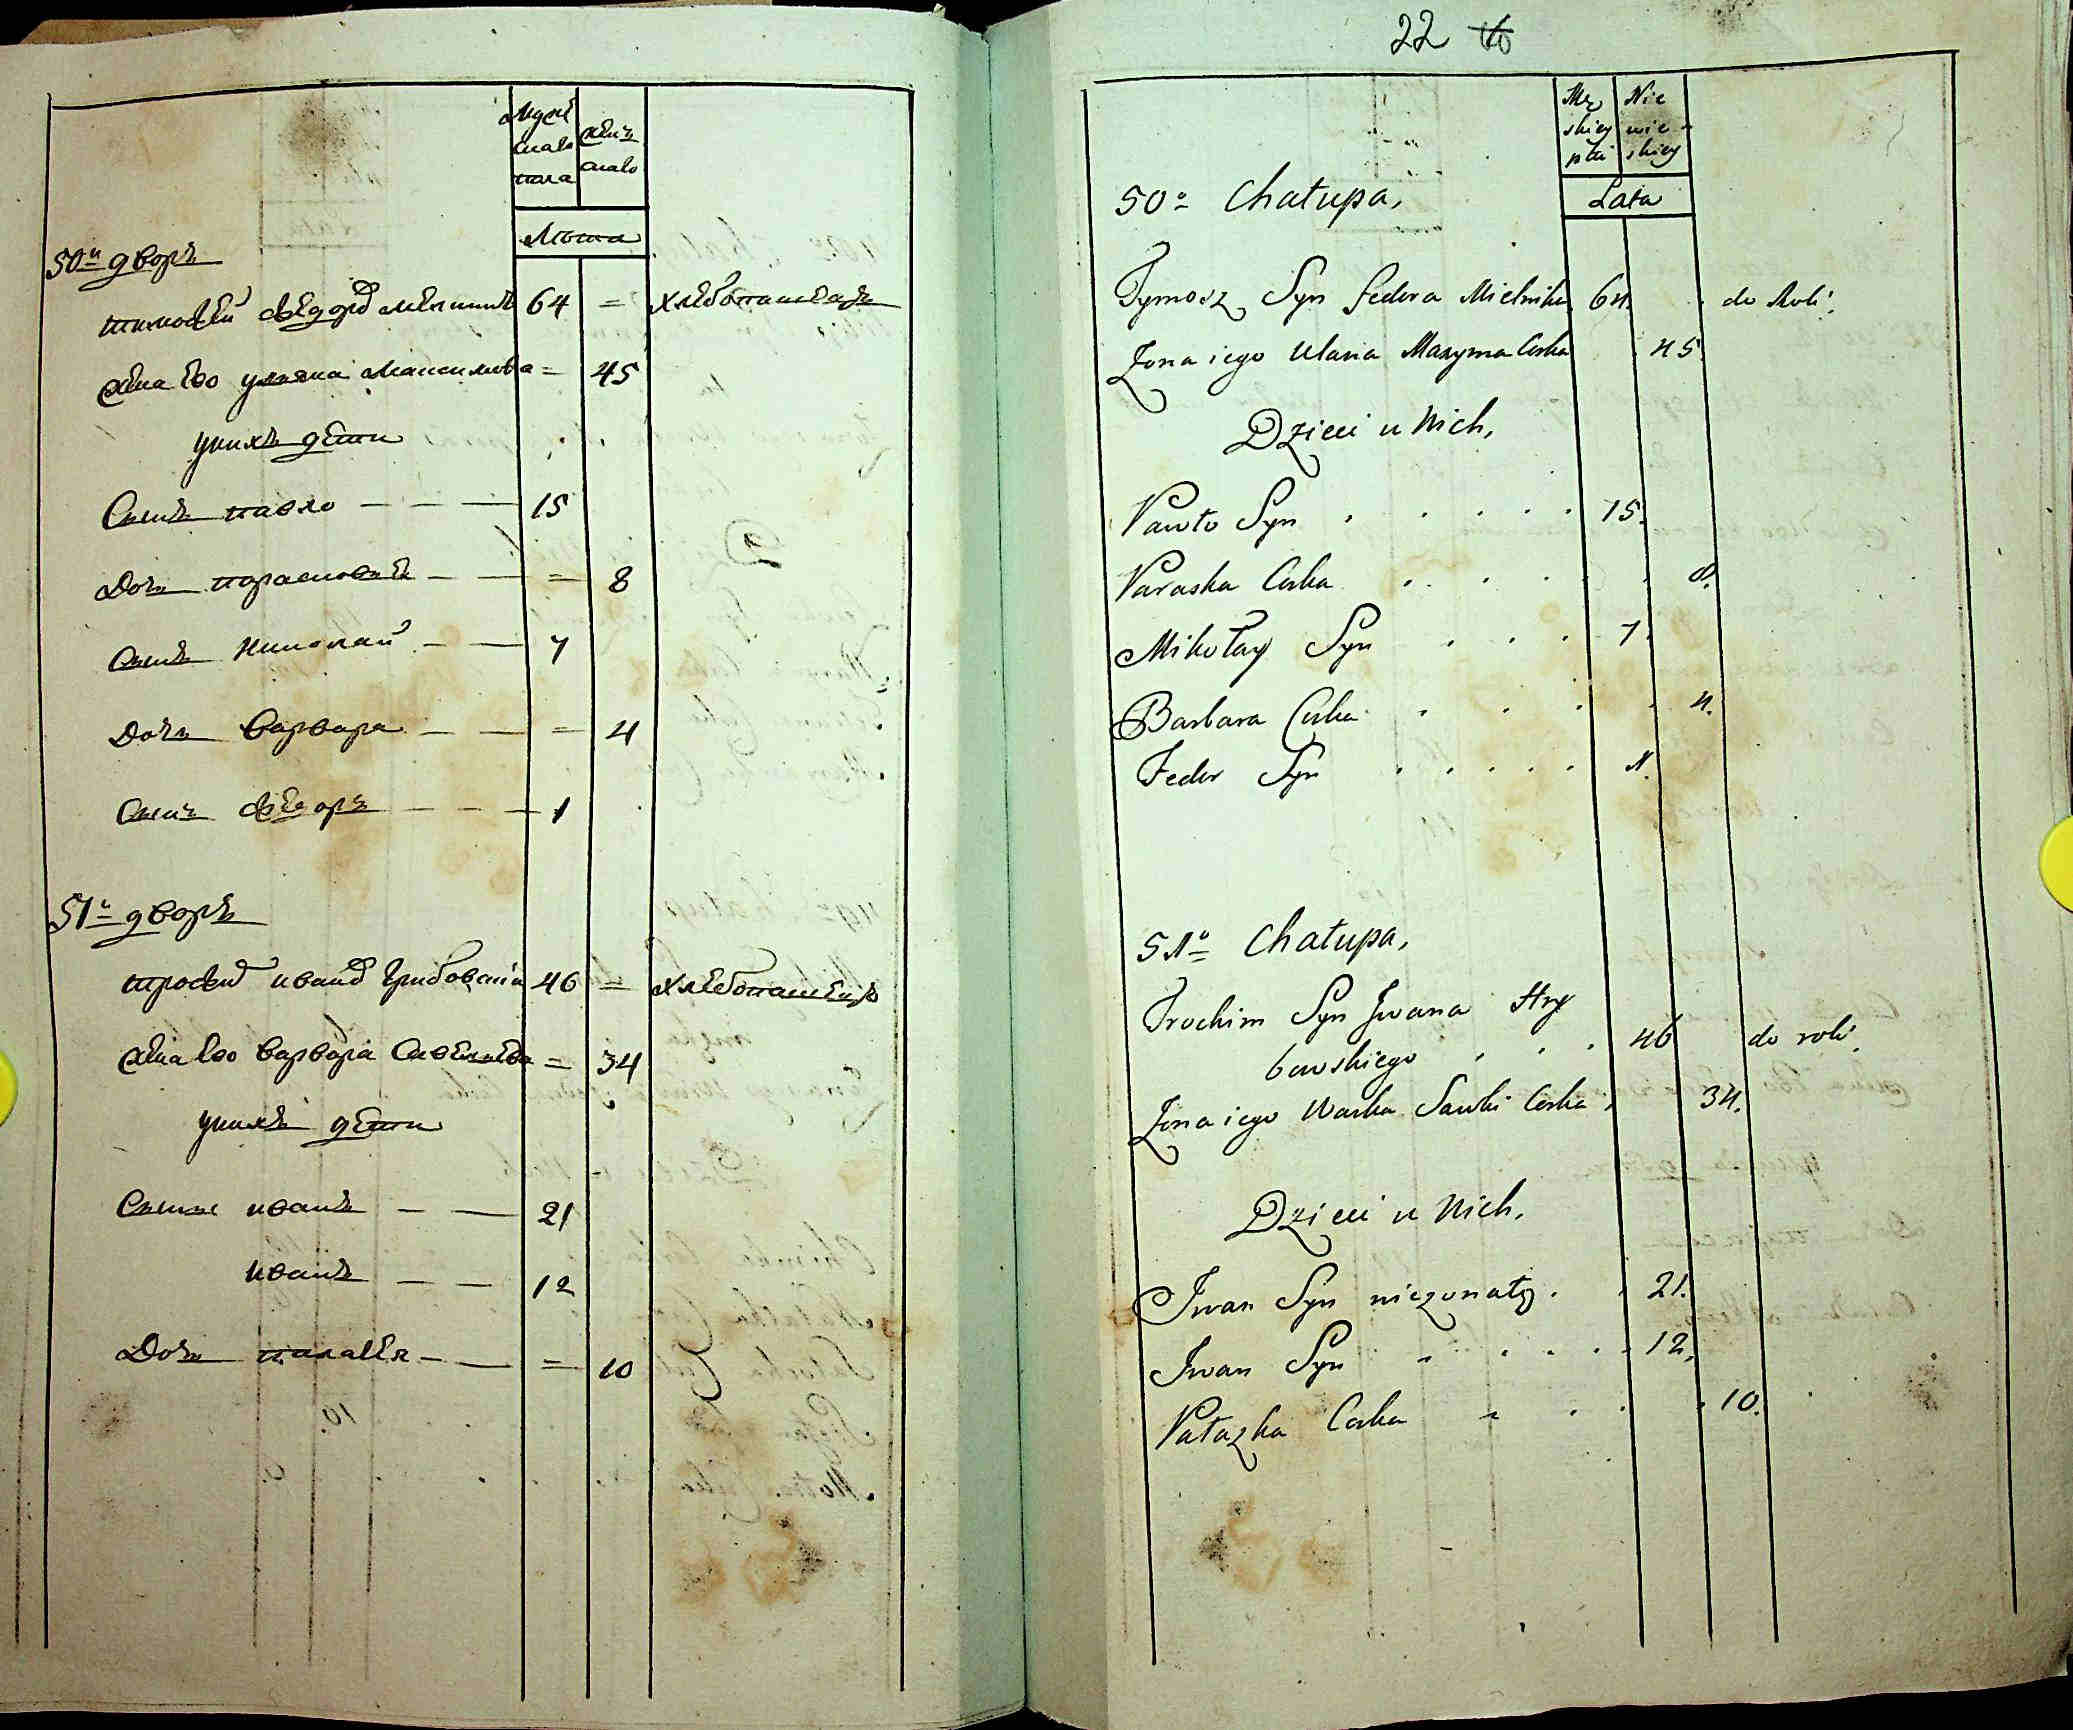 Мужеска пола
женска
Лѣта
50й дворъ
тимофей Федоров мелникъ 64 = хлебопашецъ
жена Ево улияна Максимова = 45
у нихъ дети
Сынъ павло — — — 15
Дочь парасковея — — = 8
Сынъ Николай — — 7
Дочь Варвара — — = 4
Сынъ Федоръ — — — 1
51й дворъ
трофим иванов Грибовский 46 = хлебопашецъ
жена Ево Варвара Савельева = 34
у нихъ дети
Сыны иванъ — — 21
иванъ — — 12
Дочь палагея — — = 10
22
Mę skiey płci
Nie wie- skiey
Lata
50o Chałupa,
Tymosz Syn Fedora Mielnika 64. do Roli.
Żona iego Ulana Maxyma Corka 45.
Dzieci u Nich,
Pawło Syn 15.
Paraska Corka 8.
Mikołay Syn 7.
Barbara Corka 4.
Fedor Syn 1.
51o Chałupa,
Trochim Syn Jwana Hry
bowskiego 46 do roli.
Żona iego Warka Sawki Corka, 34.
Dzieci u Nich,
Jwan Syn nieżonaty. 21.
Jwan Syn 12.
Pałażka Corka 10.